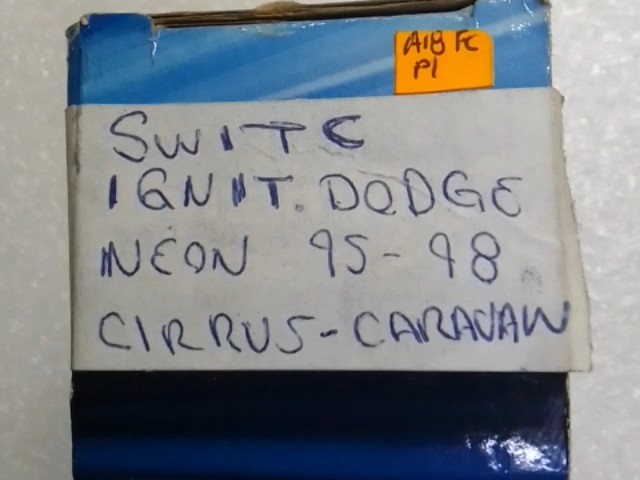 A18 FC
P1
SWITC
IGNIT. DODGE
NEON 95-98
CIRRUS-CARAVAN